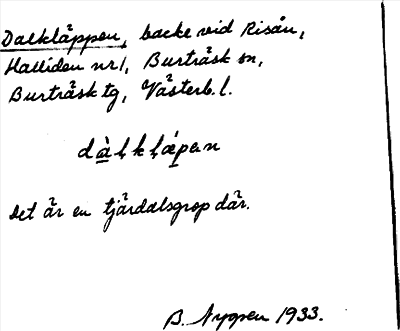 Dalkläppen, backe vid Risån,
Halliden nr 1, Burträsk sn,
Burträsk tg, Västerb. l.
dàlkḷǽpen
Det är en tjärdalsgrop där.
B. Nygren 1933.